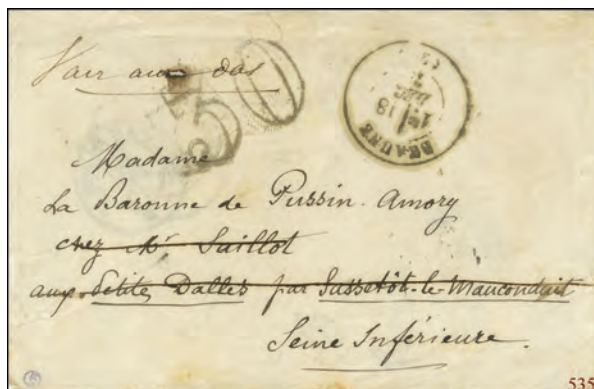 Voir au dos
30
BEAUNE
18
DEC
Madame
La Baronne de Pussin-Amory
chez Mr Saillot
aux Petites Dalles par Sassetôt-le-Mauconduit
Seine Inférieure.
535